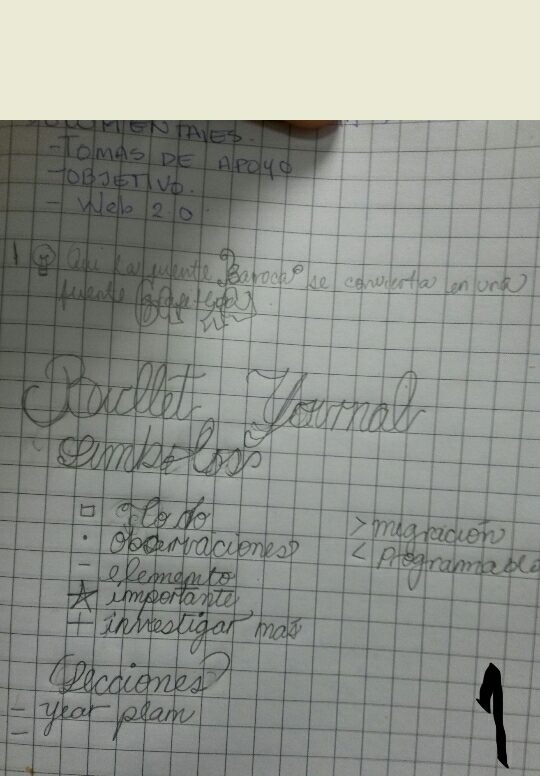 DOCUMENTALES.
- TOMAS DE APOYO
- OBJETIVO.
- Web 2.0
1 Qui la fuente Baroca se convierta en una
fuente
Bullet Journal
símbolos
□ 
· observaciones
- elemento
☆ importante
+ investigar mas
> migración
< Programable
Secciones
- year plam
-
1